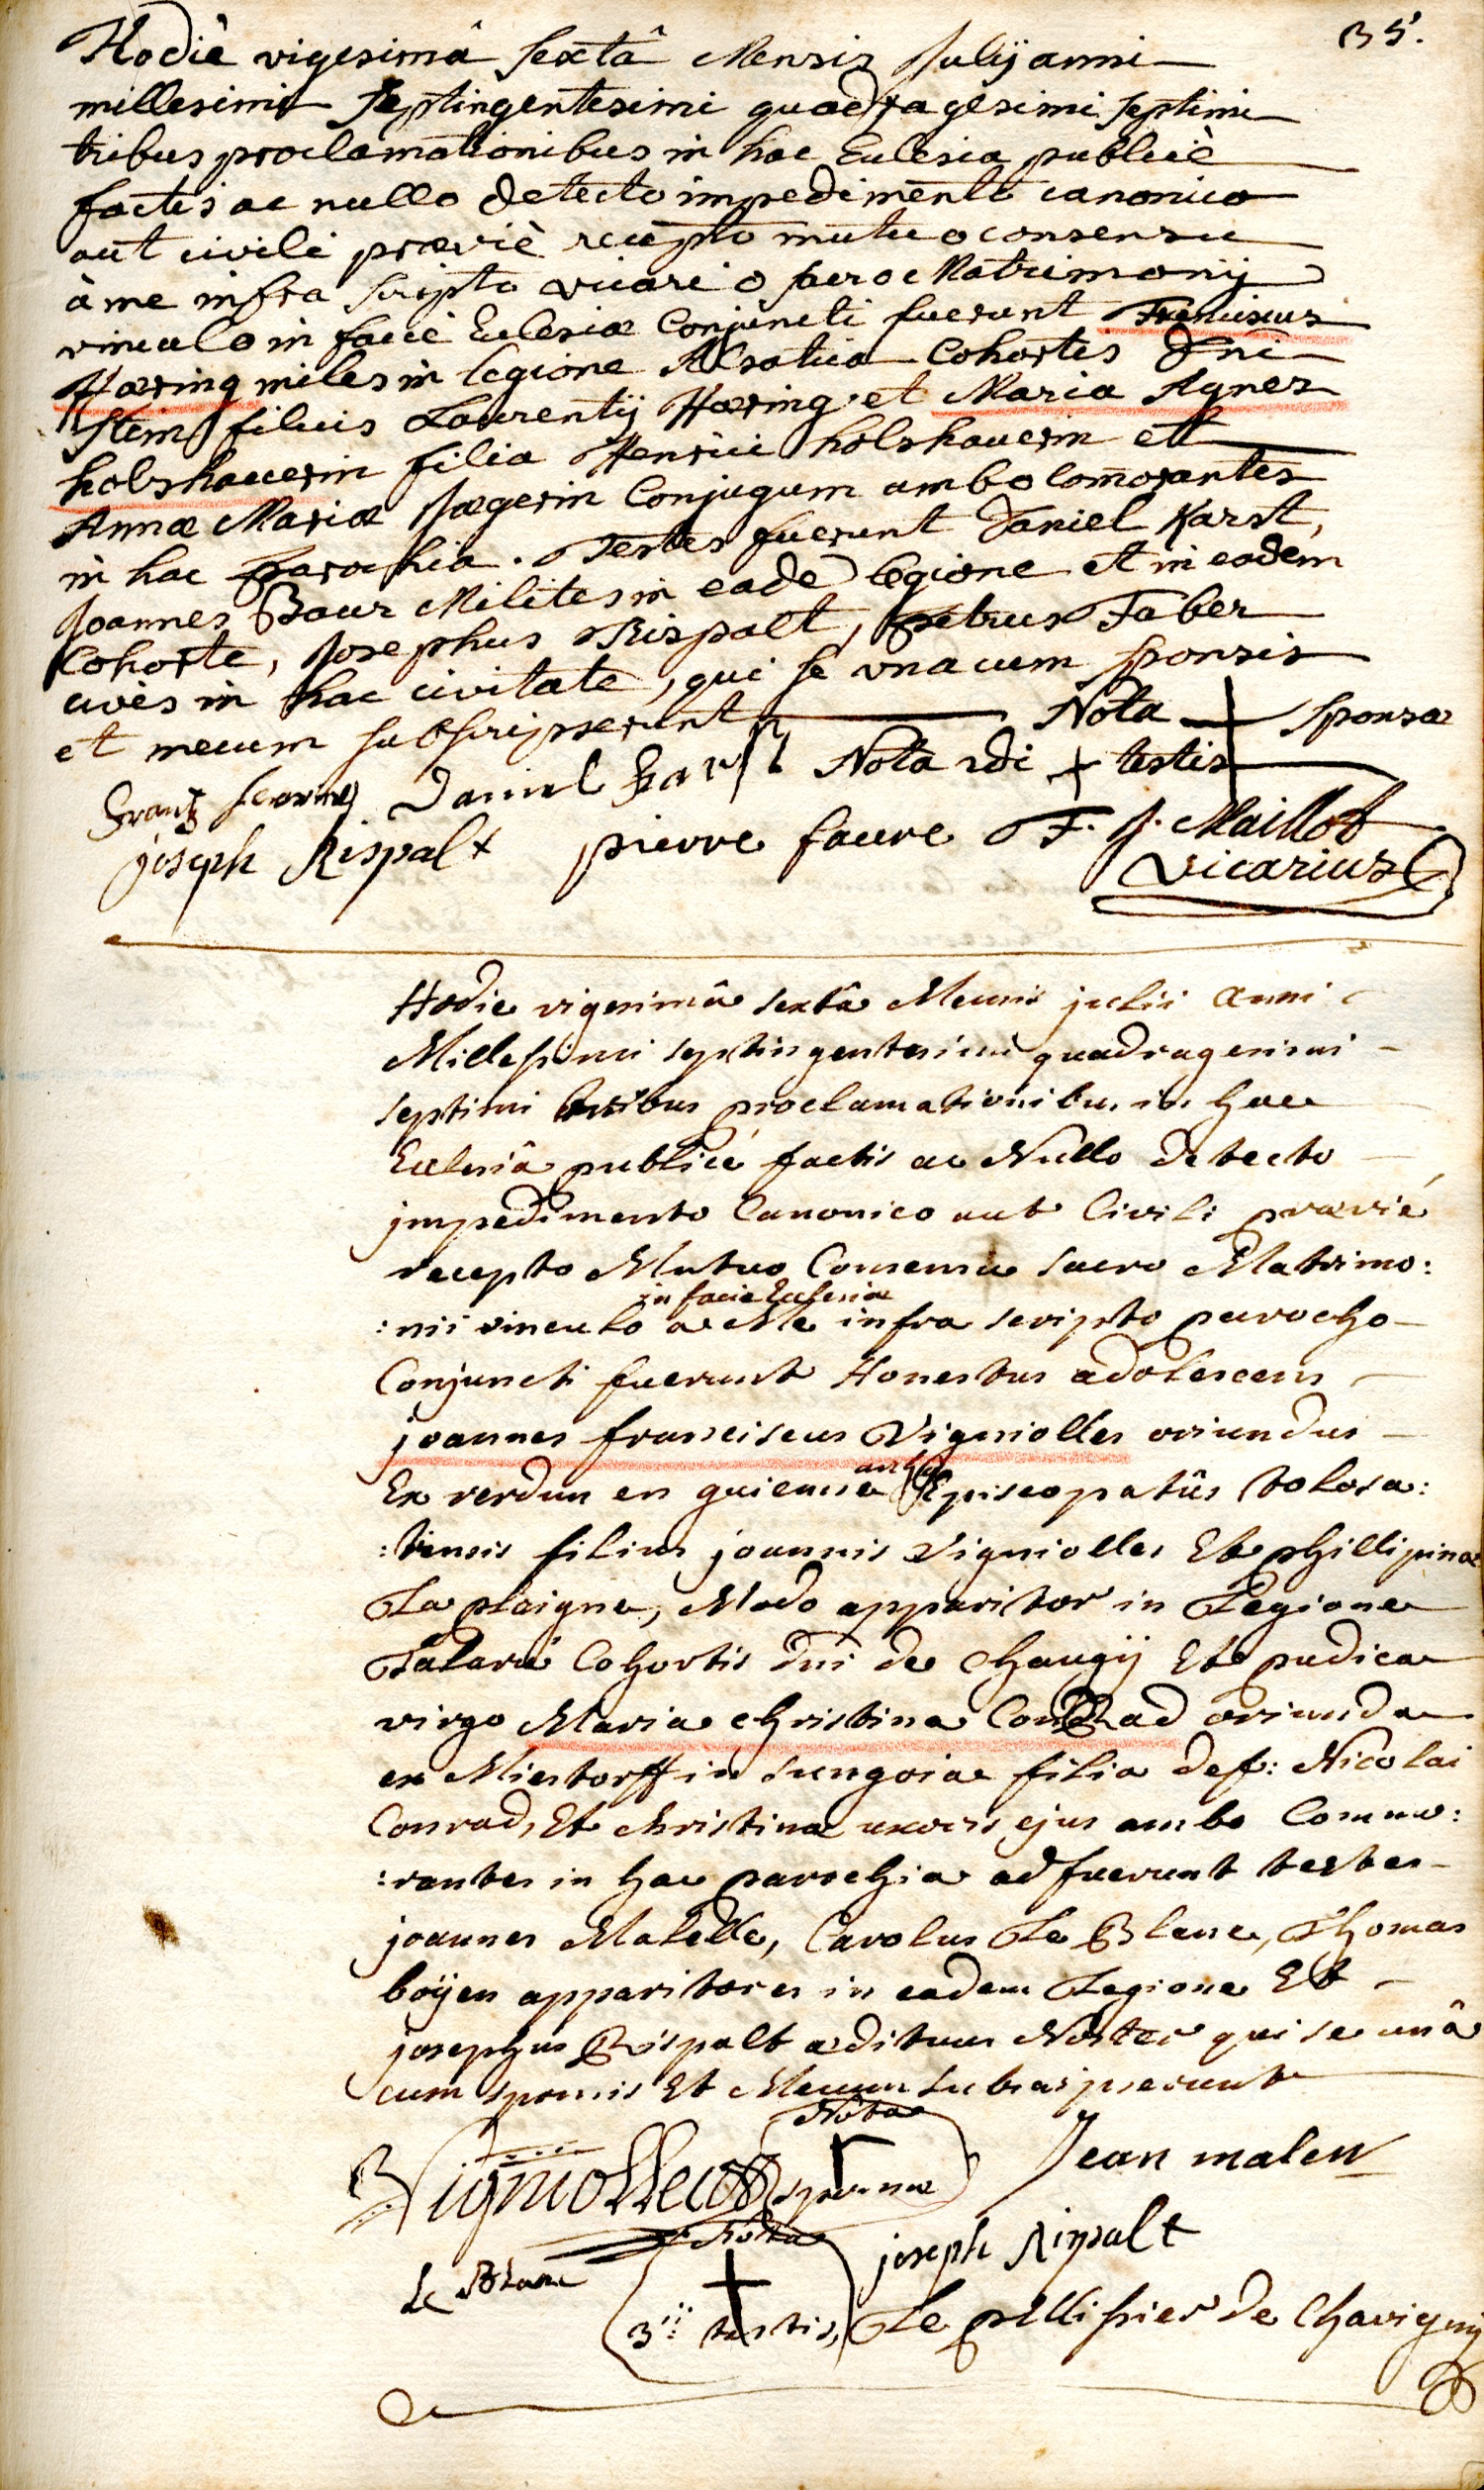 35.
Hodiè vigesimâ sextâ Mensis Julij anni
millesimi septingentesimi quadragesimi septimi
tribus proclamationibus in hac Eclesia publicè
factis ac nullo detecto impedimento canonico
aut civili præviè recepto mutuo consensu
à me infra scripto vicario sacro Matrimonij
vinculo in facie Eclesiæ Conjuncti fuerunt Franciscus
Hæring miles in legione Alsatica Cohortis Dni
Stein filius Laurentij Hæring et Maria Agnes
holshauerin filia Henrici holshauerin et
Annæ Mariæ Jægerin Conjugum ambo com̄orantes
in hac parochia. Testes fuerunt Daniel Karst,
Joannes Baur Milites in eadē legione et in eadem
Cohorte, Josephus Rispalt, petrus Faber
cives in hac civitate, qui se una cum sponsis
et mecum subscripserunt Nota + sponsæ
Frantz Daniel Karst Nota 2di + testis
joseph Rispalt pierre faure F. J. Maillot
vicarius
Hodie vigesimâ sextâ Mensis julii anni
Millesimi septingentesimi quadragesimi
septimi tribus proclamationibus in hac
Eclesiâ publicé factis ac Nullo detecto
jmpedimento Canonico aut Civili prævié
recepto Mutuo Consensu sacro Matrimo:
in facie Ecclesiæ
:nii vinculo a Me infra scripto parocho
Conjuncti fuerunt Honestus adolescens
joannes franciscus Vigniolles oriundus
archi
Ex verdun en guienne Episcopatûs tolosa:
:tensis filius joannis Vigniolles Et phillipinæ
La plaigne, Modo apparitor in Legione
Talaru Cohortis dni de Chaugij Et pudica
virgo Maria christina Conrad oriunda
ex Miestorff in sungoia filia def: Nicolai
Conrad, Et christinæ uxoris ejus ambo Commo:
:rantes in hac parochia adfuerunt testes
joannes Malelle, Carolus Le Blanc, Thomas
boÿen apparitores in eadem Legione Et
josephus Rispalt ædituus Noster qui se unâ
cum sponsis Et Mecum subscripserunt
Nota
Vigniolles sponsæ Jean malen
Nota
Le Blanc + joseph Rispalt
3ii testis, Le pellissier de Chavigny